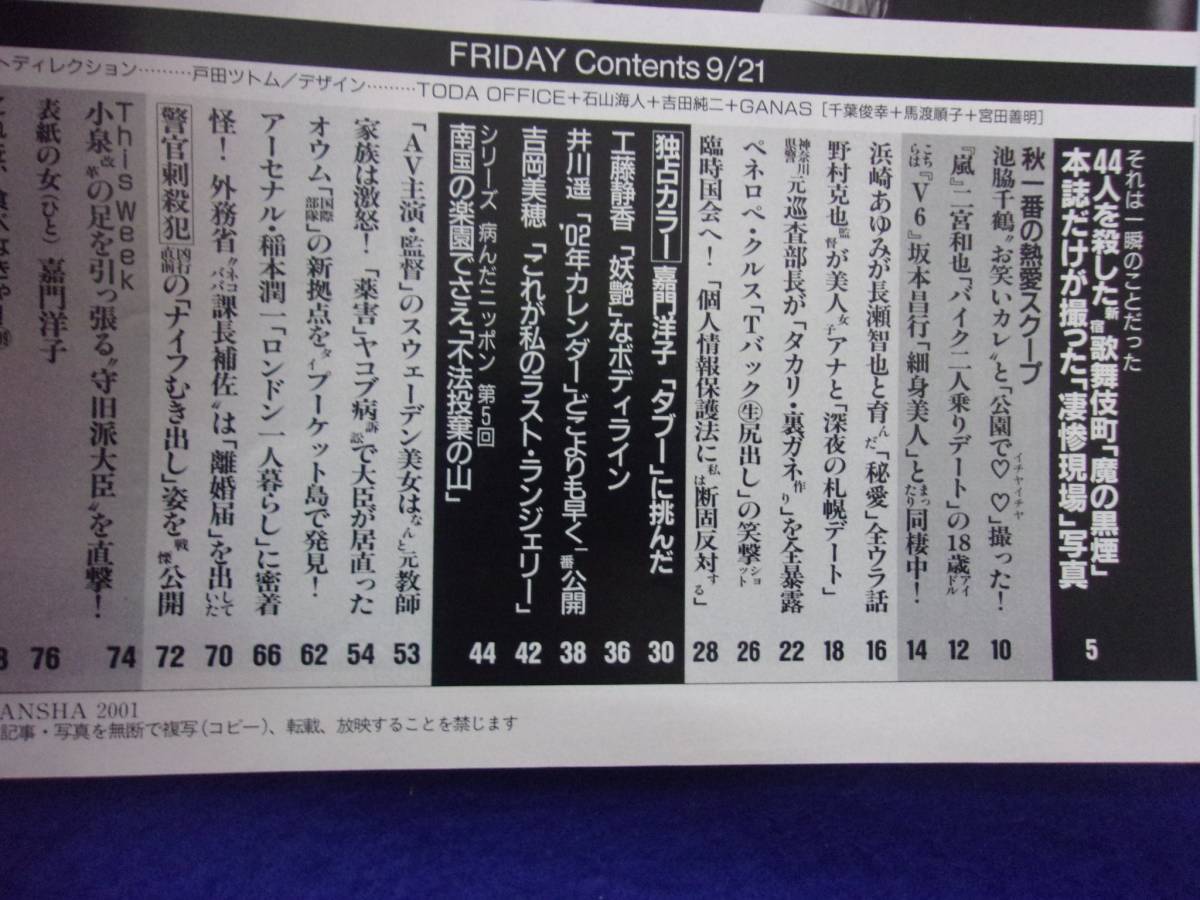 FRIDAY Contents 9/21
トディレクション………戸田ツトム／デザイン………TODA OFFICE＋石山海人＋吉田純二＋GANAS［千葉俊幸＋馬渡順子＋宮田善明］
それは一瞬のことだった
44人を殺した新宿歌舞伎町「魔の黒煙」
本誌だけが撮った「凄惨現場」写真 5
秋一番の熱愛スクープ
池脇千鶴〝お笑いカレ〟と「公園で♡♡イチャイチャ」撮った！ 10
『嵐』二宮和也「バイク二人乗りデート」の18歳アイドル 12
こちらは『V6』坂本昌行「細身美人」とまったり同棲中！ 14
浜崎あゆみが長瀬智也と育んだ「秘愛」全ウラ話 16
野村克也監督が美人女子アナと「深夜の札幌デート」 18
神奈川県警元巡査部長が「タカリ・裏ガネ作り」を全暴露 22
ペネロペ・クルス「Tバック㊤尻出し」の笑撃ショット 26
臨時国会へ！「個人情報保護法に私は断固反対する」 28
独占カラー 嘉門洋子「タブー」に挑んだ 30
工藤静香「妖艶」なボディライン 36
井川遥「'02年カレンダー」どこよりも早く一番公開 38
吉岡美穂「これが私のラスト・ランジェリー」 42
シリーズ 病んだニッポン 第5回
南国の楽園でさえ「不法投棄の山」 44
「AV主演・監督」のスウェーデン美女はなんと元教師 53
家族は激怒！「薬害」ヤコブ病訴訟で大臣が居直った 54
オウム「国際部隊」の新拠点をタイプーケット島で発見！ 62
アーセナル・稲本潤一「ロンドン一人暮らし」に密着 66
怪！外務省〝ネコババ課長補佐〟は「離婚届」を出していた 70
警官刺殺犯 凶行直前の「ナイフむき出し」姿を戦慄公開 72
This Week
小泉改革の足を引っ張る〝守旧派大臣〟を直撃！ 74
表紙の女（ひと） 嘉門洋子 76
ANSHA 2001
記事・写真を無断で複写（コピー）、転載、放映することを禁じます